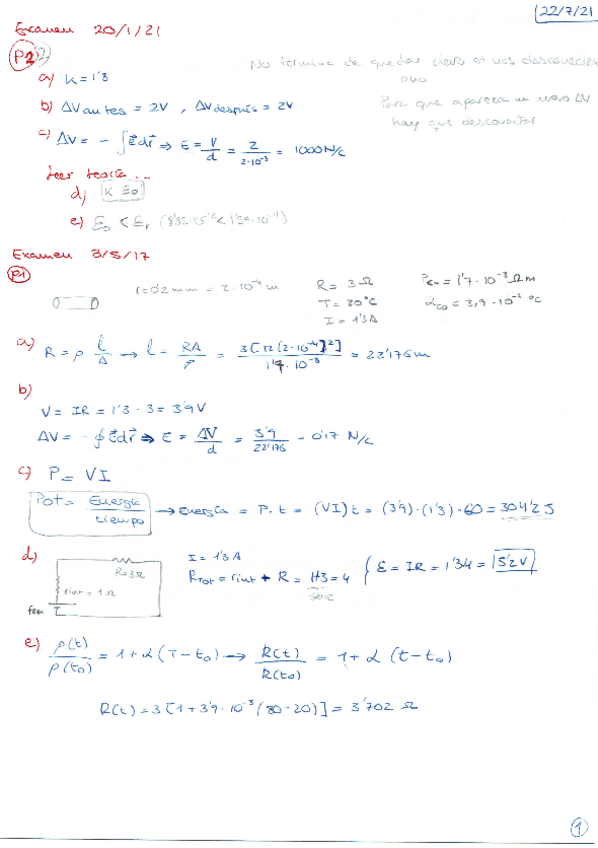 22/7/21
Examen 20/1/21
P2
No termina de quedar claro si nos desconectan
ono
a) K = 1'3
b) ΔVantes = 2V , ΔVdespués = 2V
Para que aparezca un nuevo ΔV
hay que desconectar
c) ΔV = - ∫ E dr ⇒ E = V/d = 2/2·10⁻³ = 1000 N/c
leer teoría ...
d) K E₀
e) E₀ < Er
Examen 3/5/17
P1
r = 0'2mm = 2·10⁻⁴ m
R = 3 Ω
T = 20°C
I = 1'3 A
ρcu = 1'7·10⁻⁸ Ω m
a) R = ρ l/A → l = RA/ρ = 3[π(2·10⁻⁴)²]/1'7·10⁻⁸ = 22'176 m
b)
V = IR = 1'3 · 3 = 3'9 V
ΔV = - ∮ E dr ⇒ E = ΔV/d = 3'9/22'176 = 0'17 N/c
c) P = VI
Pot = Energía/tiempo → Energía = P·t = (VI)t = (3'9)·(1'3)·60 = 304'2 J
d)
R=3Ω
rint = 1Ω
fem
I = 1'3 A
RTot = rint + R = 1+3 = 4
serie
ε = IR = 1'3·4 = 5'2 V
e) ρ(t)/ρ(t₀) = 1 + α (T - t₀) → R(t)/R(t₀) = 1 + α (t - t₀)
R(t) = 3 [1 + 3'9·10⁻³ (80 - 20)] = 3'702 Ω
1